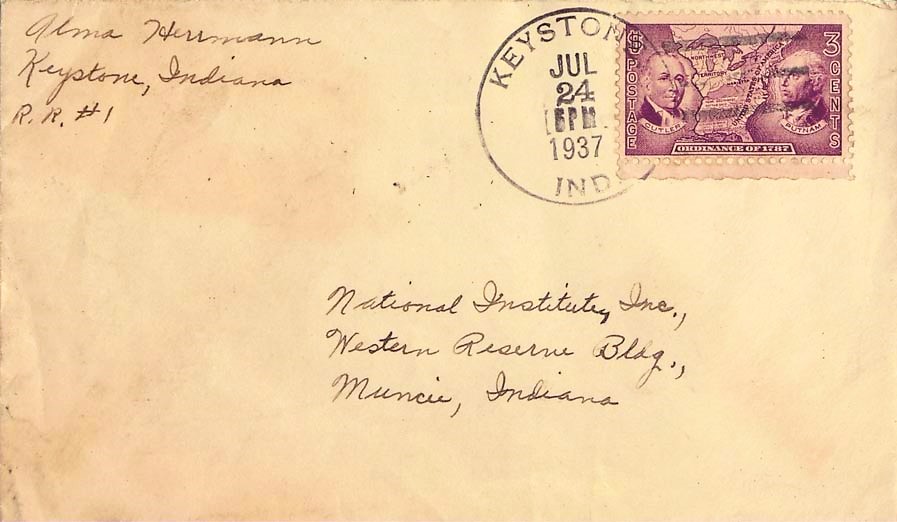 Alma Herrmann
Keystone, Indiana
R. R. #1
KEYSTON
JUL
24
PM
1937
IND.
$ POSTAGE
3 CENTS
NORTHWEST
TERRITORY
CUTLER
PUTNAM
ORDINANCE OF 1787
National Institute, Inc.,
Western Reserve Bldg.,
Muncie, Indiana